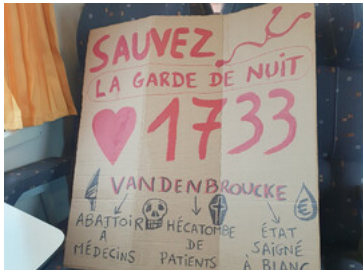 SAUVEZ
LA GARDE DE NUIT
1733
VANDENBROUCKE
ABATTOIR À MÉDECINS
HÉCATOMBE DE PATIENTS
ÉTAT SAIGNÉ À BLANC
€